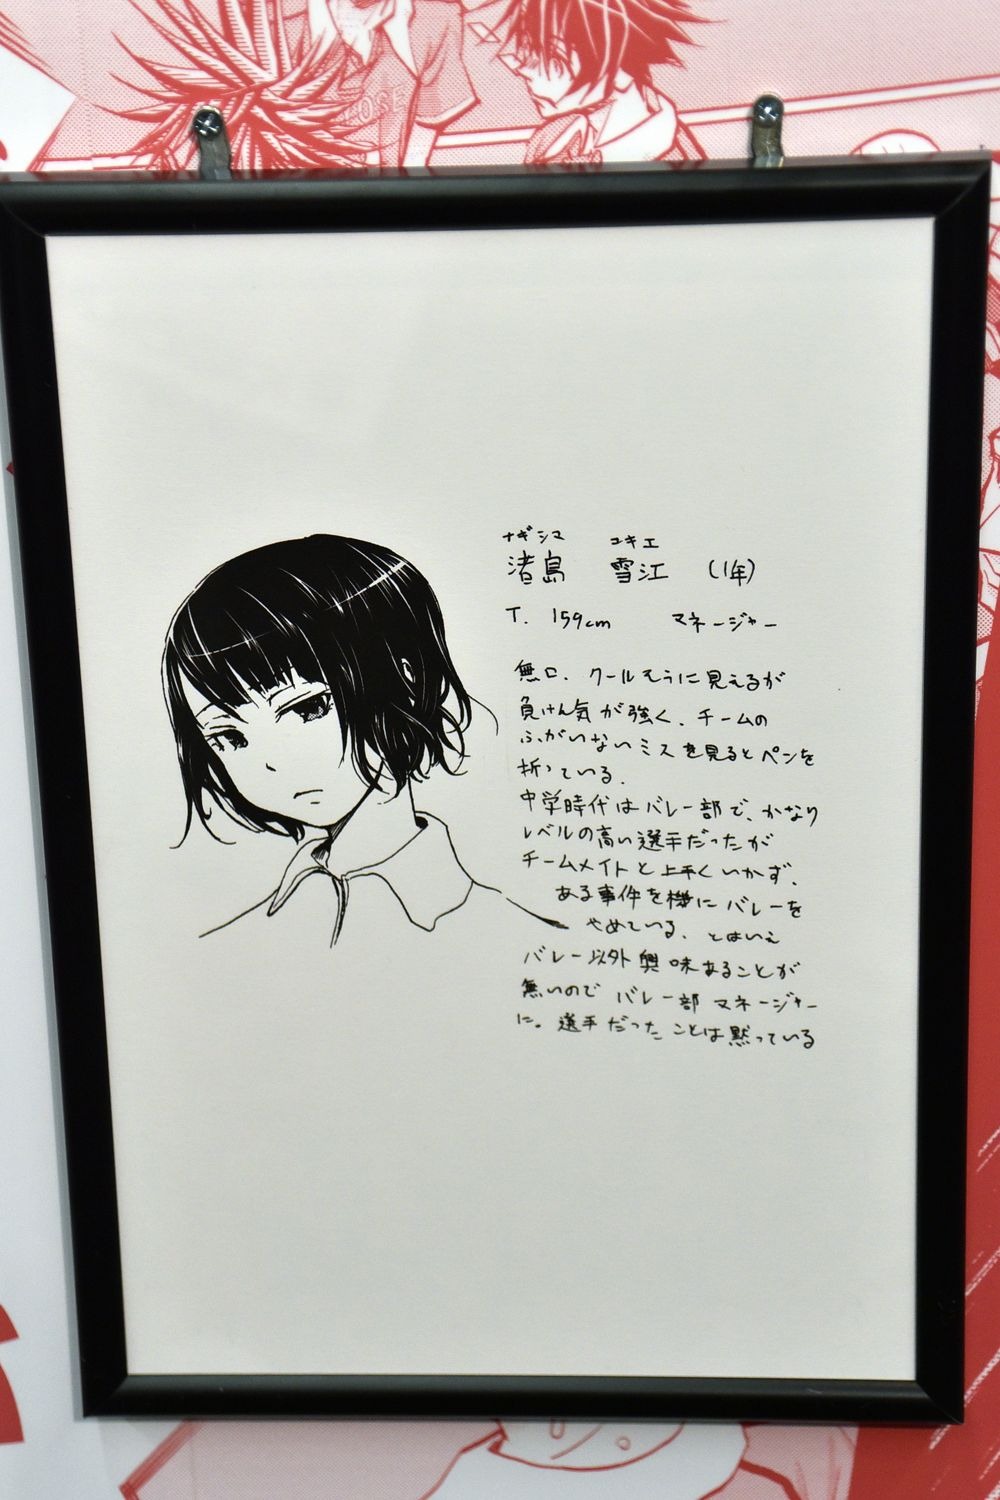 ナギシマ ユキエ
渚島 雪江 (1年)
T. 159cm マネージャー
無口、クールそうに見えるが
負けん気が強く、チームの
ふがいないミスを見るとペンを
折っている、
中学時代はバレー部で、かなり
レベルの高い選手だったが
チームメイトと上手くいかず、
ある事件を機にバレーを
やめている、とはいえ
バレー以外興味あることが
無いのでバレー部マネージャー
に。選手だったことは黙っている